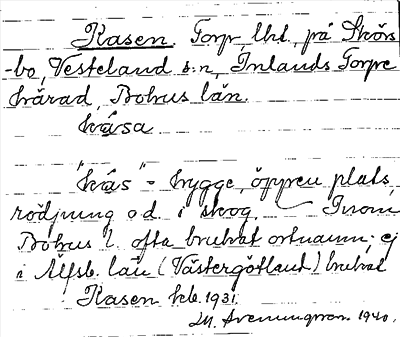 Kasen. Torp, lht. på Skörs
-bo, Vesteland s:n, Inlands Torpe
härad, Bohus län.
kåsa
"kås" = hygge, öppen plats,
rödjning o d. i skog. Inom
Bohus l. ofta brukat ortnamn; ej
i Älfsb. län (Västergötland) brukat
Kasen feb. 1931.
M. Areningson. 1940.